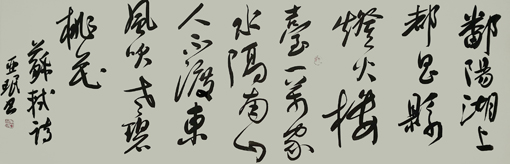 鄱陽湖上
都昌縣
燈火樓
臺一萬家
水隔南山
人不渡東
風吹老碧
桃花
蘇軾詩
亞珉書